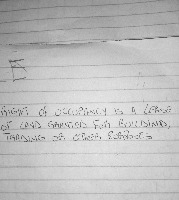 E
RIGHT OF OCCUPANCY IS A LEASE
OF LAND GRANTED FOR BUILDING,
TRADING OR OTHER PURPOSES